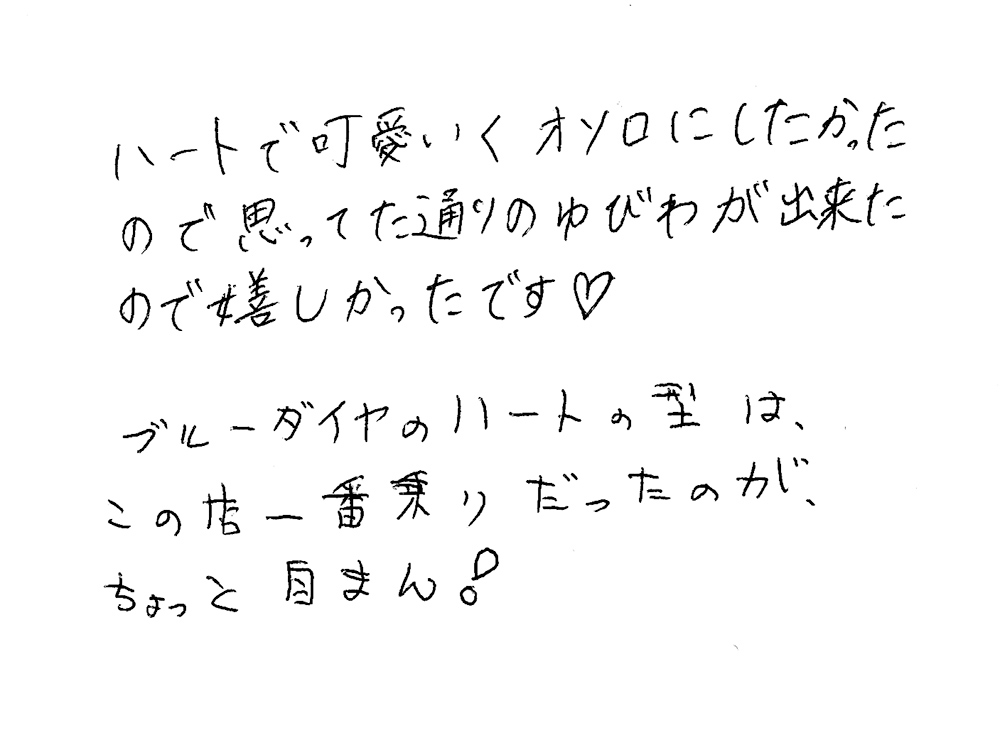 ハートで可愛いくオソロにしたかった
ので思ってた通りのゆびわが出来た
ので嬉しかったです♡
ブルーダイヤのハートの型は、
この店一番乗りだったのが、
ちょっと自まん!